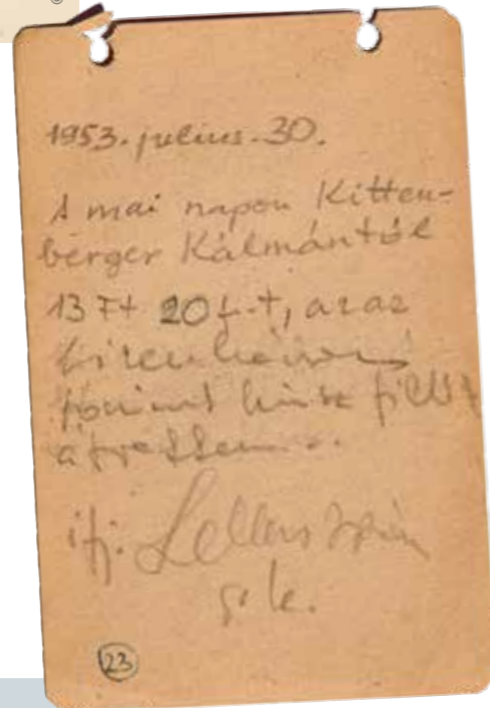 1953. julius. 30.
A mai napon Kitten-
berger Kálmántól
13 Ft 20 f-t, azaz
tizenhárom
forint húsz fillért
átvettem.
ifj.
s. k.
23